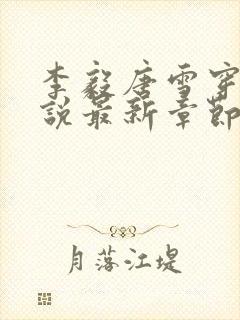 李毅唐雪穿
說最新章節
月落江堤